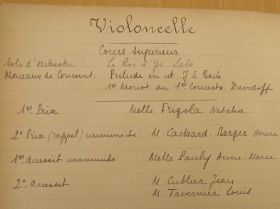 Violoncelle
Cours Supérieur
Solo d'orchestre : Le Roi d'Ys Lalo
Morceaux de Concours. Prélude en ut J.S. Bach
1er Mouvt du 1er Concerto Davidoff
1er Prix Melle Frigola Natalia
2e Prix (rappel) unanimité M. Cachard. Berger
1er Accessit unanimité Melle Pauly Anne Marie
2e Accessit M. Cublier Jean
M. Tavernier Louis